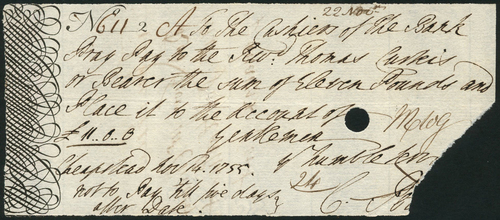 22 Novr
No. 11 2 A To The Cashiers of The Bank
Pray Pay to the Revd. Thomas
or Bearer the sum of Eleven Pounds and
Place it to the Account of
£ 11..0..0 Gentlemen
Chepstead Nov 14. 1755. yr humble
not to Pay till five days 24 C.
after Date